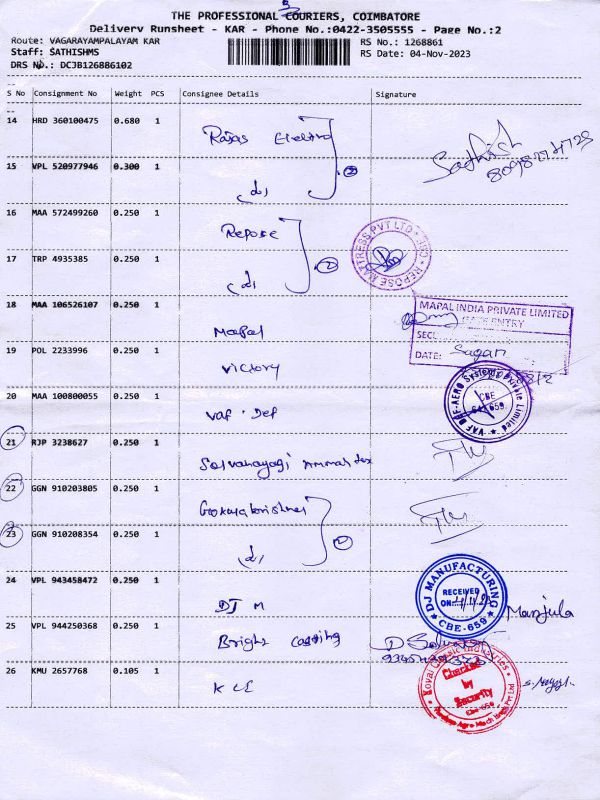 THE PROFESSIONAL COURIERS, COIMBATORE
Delivery Runsheet - KAR - Phone No.:0422-3505555 - Page No.:2
Route: VAGARAYAMPALAYAM KAR
RS No.: 1268861
Staff: SATHISHMS
RS Date: 04-Nov-2023
DRS No.: DCJB126886102
S No Consignment No Weight PCS Consignee Details Signature
14 HRD 360100475 0.680 1 Rajas Electro
Sathish
15 VPL 520977946 0.300 1 (2)
(do)
16 MAA 572499260 0.250 1 Repose
REPOSE MATTRESS PVT LTD
17 TRP 4935385 0.250 1 (2)
(do)
18 MAA 106526107 0.250 1 Mapal
MAPAL INDIA PRIVATE LIMITED
ENTRY
DATE: Sagar
19 POL 2233996 0.250 1 Victory
20 MAA 100800055 0.250 1 Vaf . Def
VAF - AERO Systems Private Limited
CBE 641 659
21 RJP 3238627 0.250 1
22 GGN 910203805 0.250 1 Gokulakrishnan
23 GGN 910208354 0.250 1 (2)
(do)
24 VPL 943458472 0.250 1 DJ M
DJ MANUFACTURING
RECEIVED
ON:
CBE-659
Manjula
25 VPL 944250368 0.250 1 Bright Casting
26 KMU 2657768 0.105 1 K C E
Kovai Classic Industries
Checked
by
Security
Cbe-659